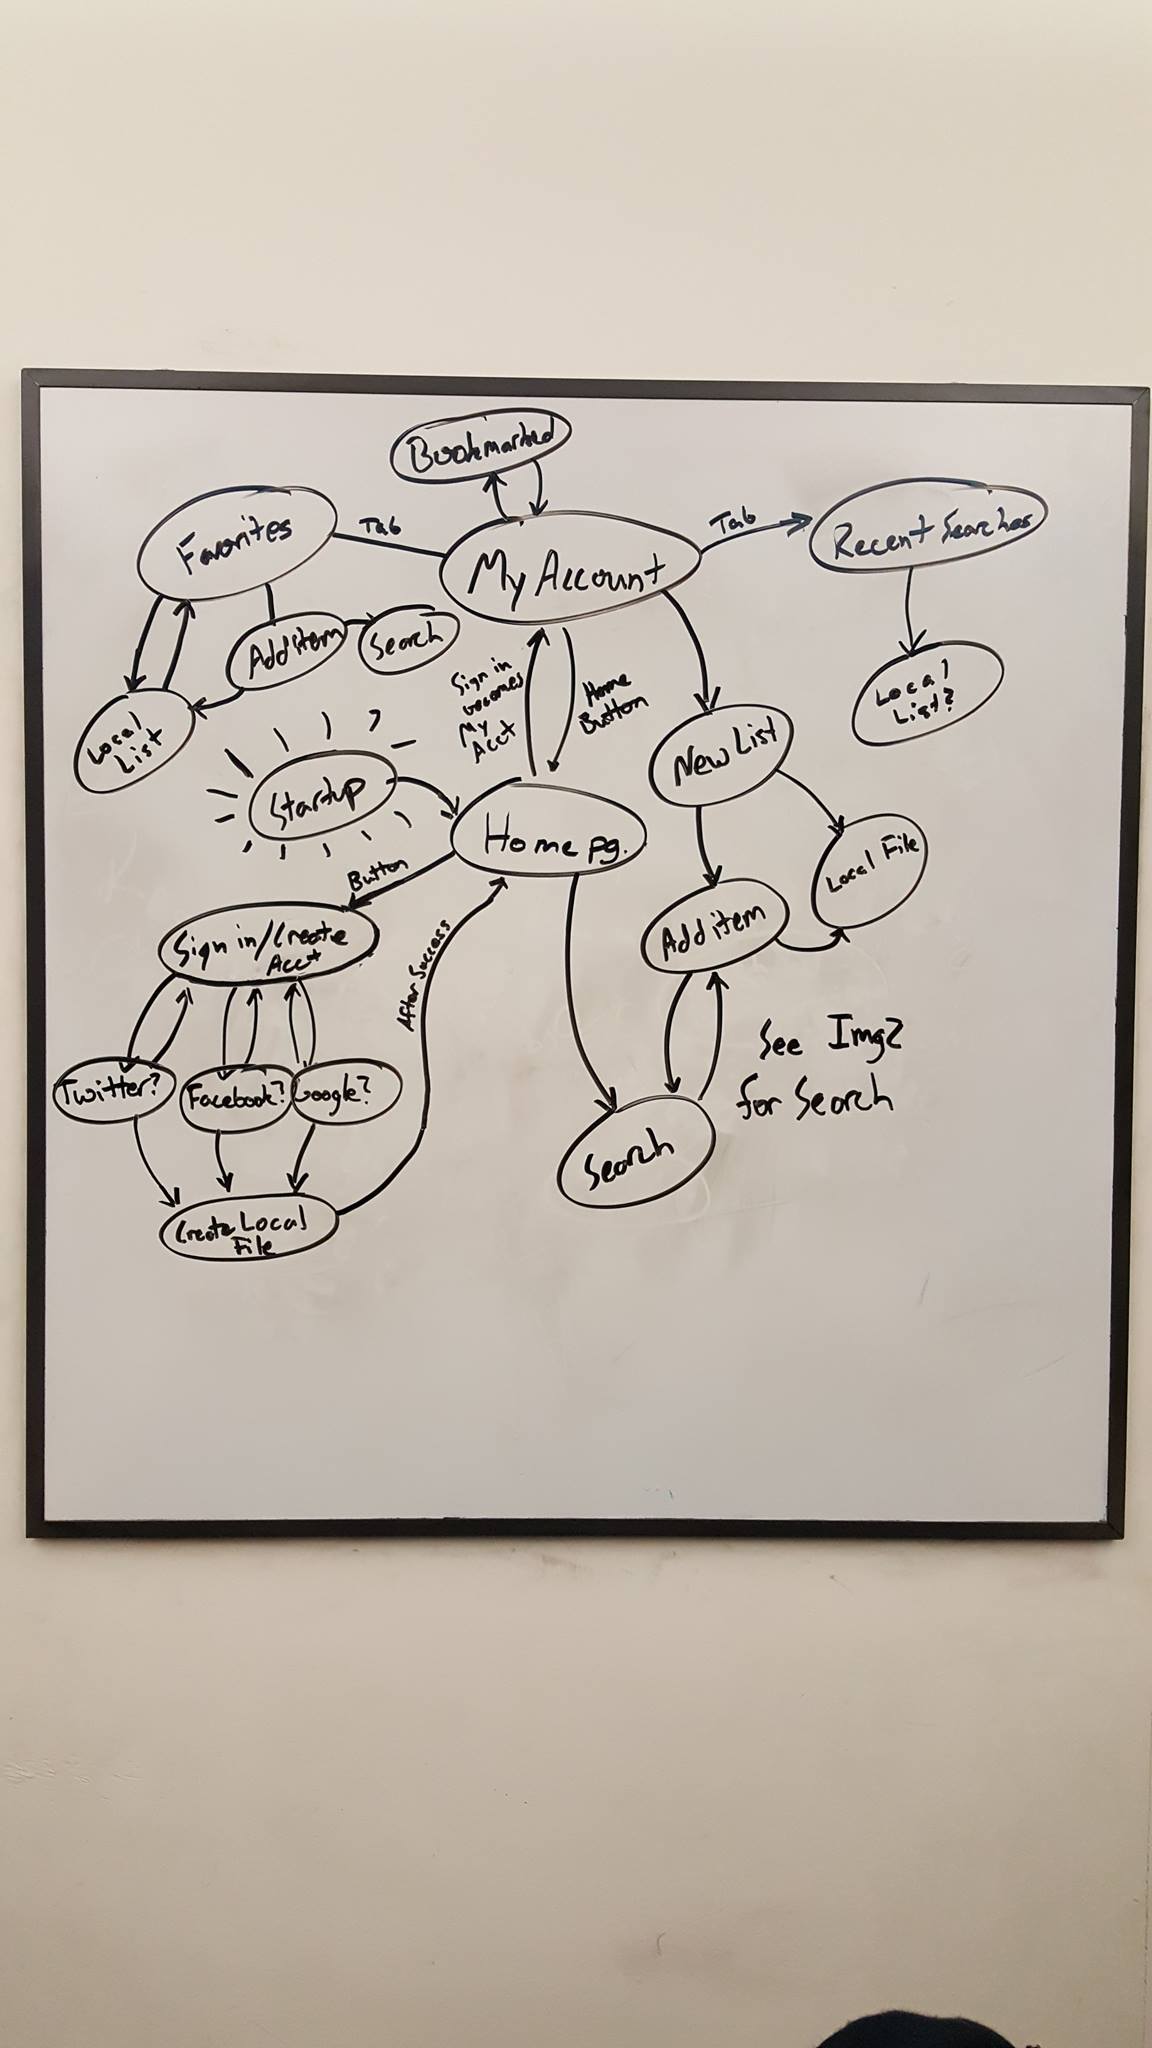 Bookmarked
Favorites
Tab
My Account
Tab
Recent Searches
Add item
Search
Local
List
Sign in
becomes
My
Acct
Home
Button
Local
List?
New List
Startup
Home pg.
Local File
Button
Add item
Sign in/Create
Acct
After Success
See Img2
for Search
Twitter?
Facebook?
Google?
Search
Create Local
File